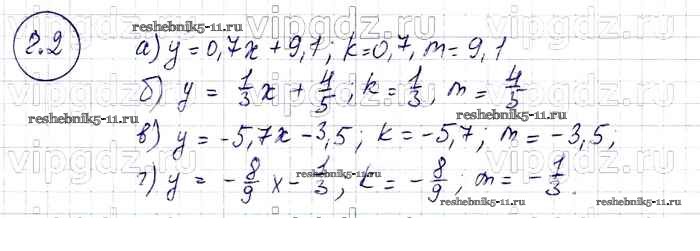 8.2
а) y = 0,7x + 9,1; k = 0,7, m = 9,1
б) y = 1/3 x + 4/5; k = 1/3, m = 4/5
в) y = -5,7x - 3,5; k = -5,7; m = -3,5;
г) y = -8/9 x - 1/3, k = -8/9; m = -1/3.
reshebnik5-11.ru
reshebnik5-11.ru
reshebnik5-11.ru
reshebnik5-11.ru
reshebnik5-11.ru
reshebnik5-11.ru
vipgdz.ru
vipgdz.ru
vipgdz.ru
vipgdz.ru
vipgdz.ru
vipgdz.ru